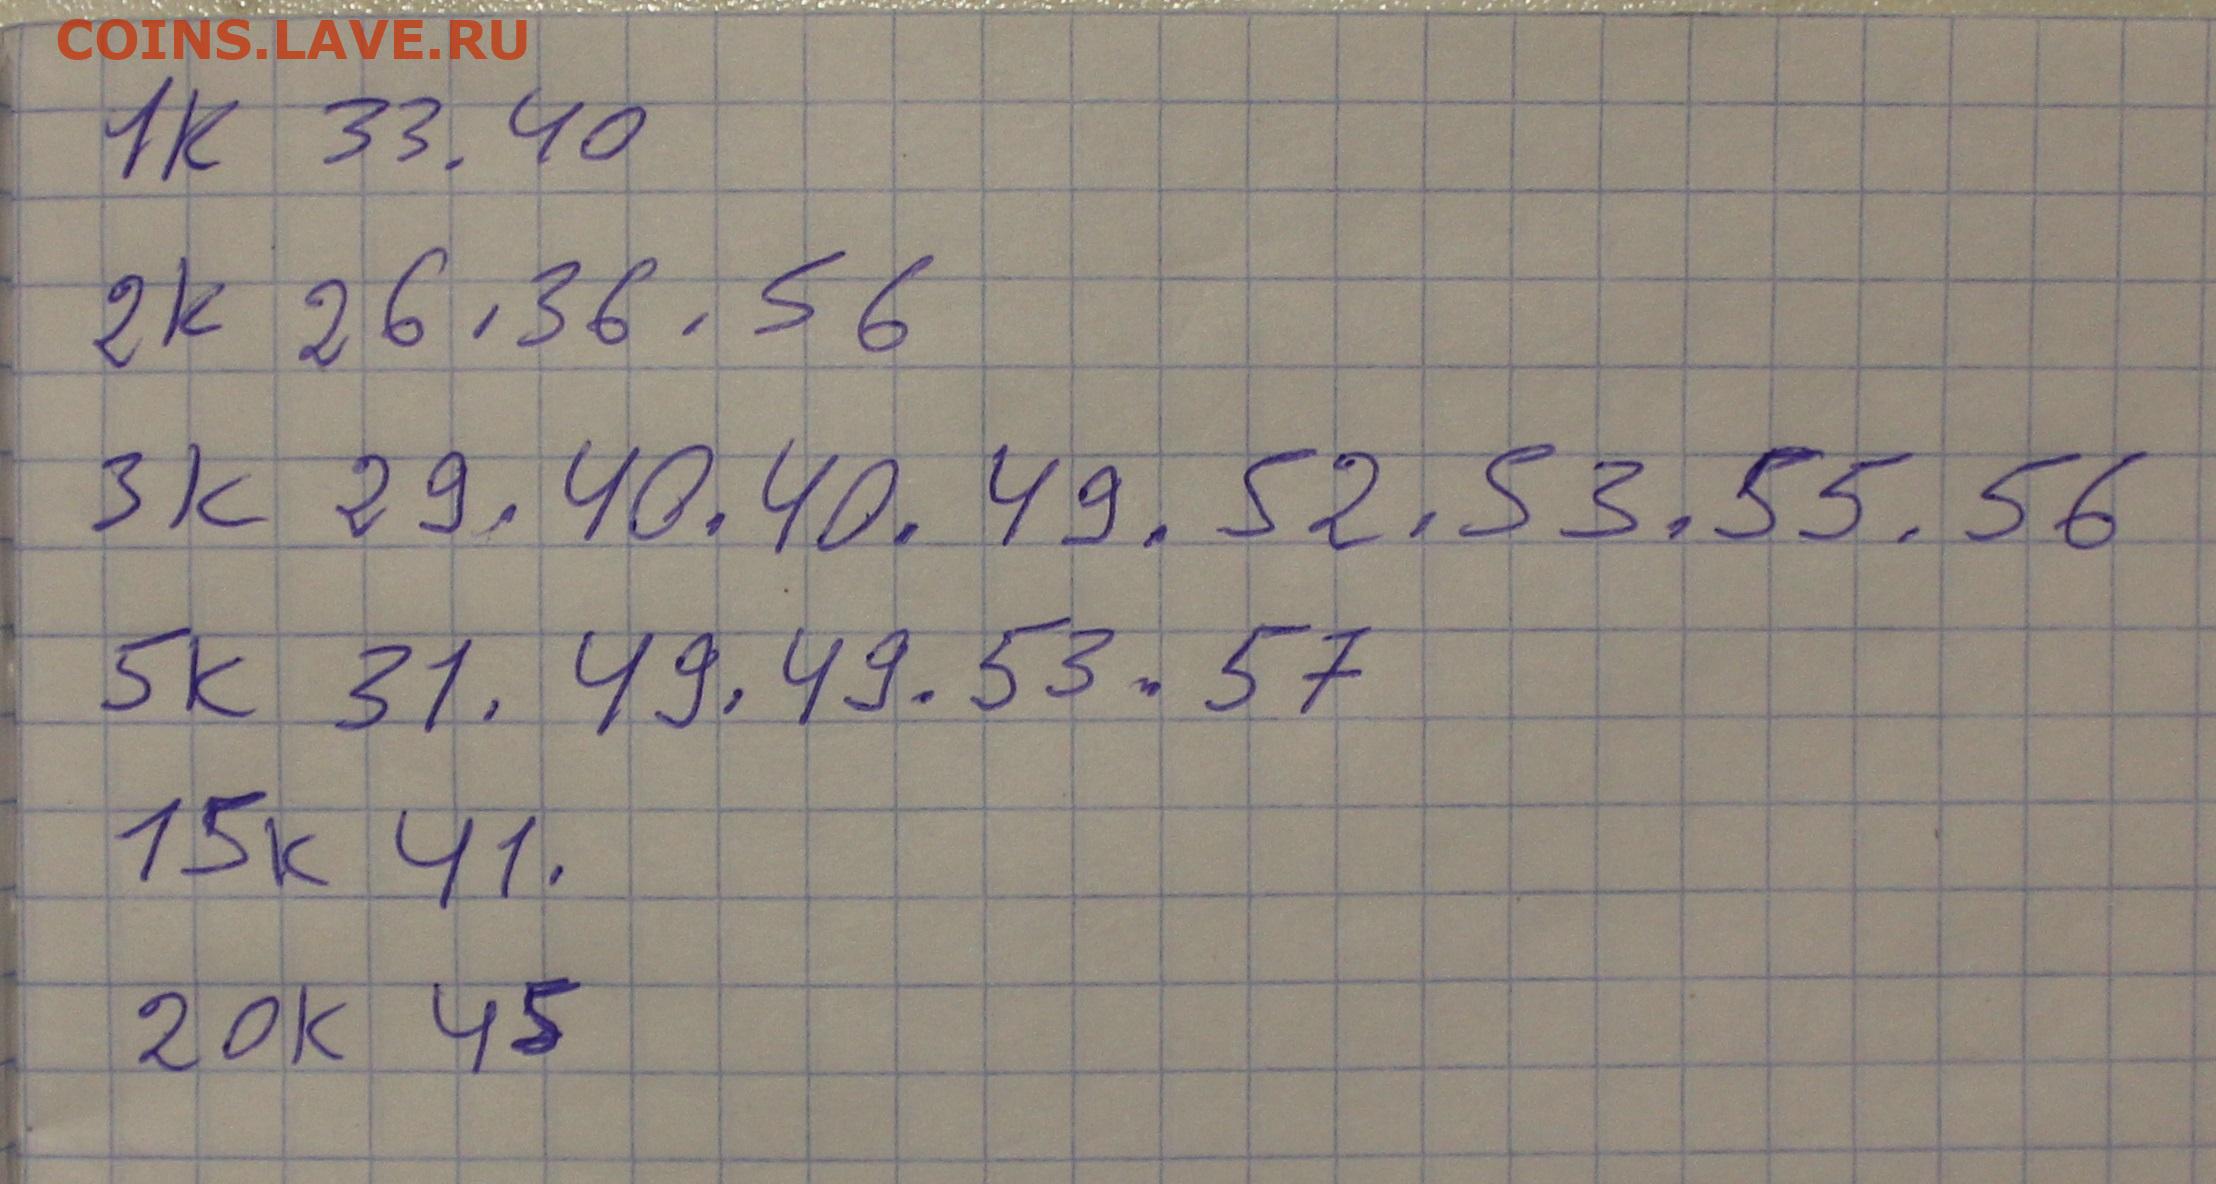 COINS.LAVE.RU
1к 33.40
2к 26.36.56
3к 29.40.40.49.52.53.55.56
5к 31.49.49.53.57
15к 41.
20к 45